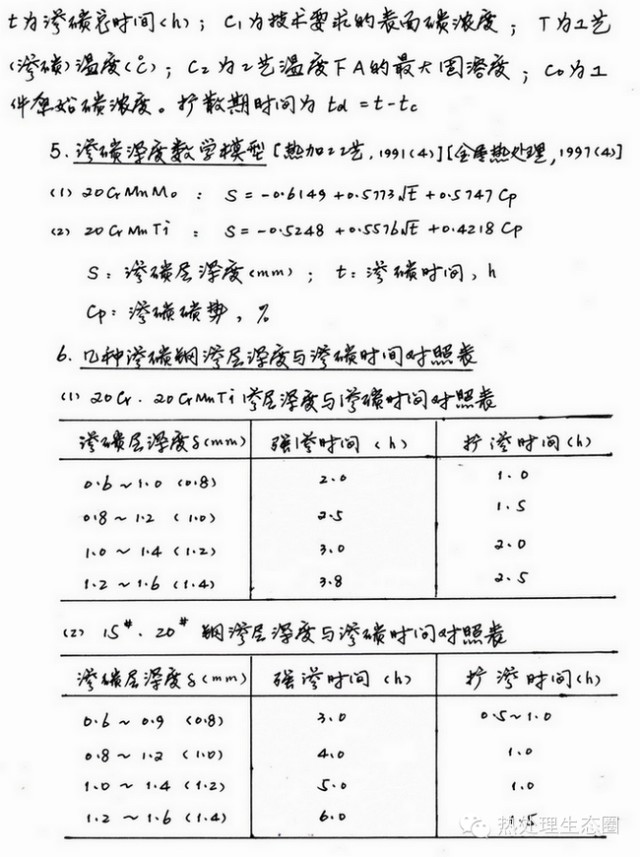 t为渗碳总时间(h); C₁为技术要求的表面碳浓度; T为工艺
(渗碳)温度(℃); C₂为工艺温度下A的最大固溶度; C₀为工
件原始碳浓度。扩散期时间为 td = t-tc
5. 渗碳深度数学模型 [热加工工艺, 1991(4)] [金属热处理, 1997(4)]
(1) 20CrMnMo : S = -0.6149 + 0.5773√t + 0.5747 Cp
(2) 20CrMnTi : S = -0.5248 + 0.5576√t + 0.4218 Cp
S: 渗碳层深度(mm); t: 渗碳时间, h
Cp: 渗碳碳势, %
6. 几种渗碳钢渗层深度与渗碳时间对照表
(1) 20Cr. 20CrMnTi渗层深度与渗碳时间对照表
渗碳层深度δ(mm) 强渗时间 (h) 扩渗时间(h)
0.6~1.0 (0.8) 2.0 1.0
0.8~1.2 (1.0) 2.5 1.5
1.0~1.4 (1.2) 3.0 2.0
1.2~1.6 (1.4) 3.8 2.5
(2) 15#. 20# 钢渗层深度与渗碳时间对照表
渗碳层深度δ(mm) 强渗时间 (h) 扩渗时间(h)
0.6~0.9 (0.8) 3.0 0.5~1.0
0.8~1.2 (1.0) 4.0 1.0
1.0~1.4 (1.2) 5.0 1.0
1.2~1.6 (1.4) 6.0 1.5
热处理生态圈